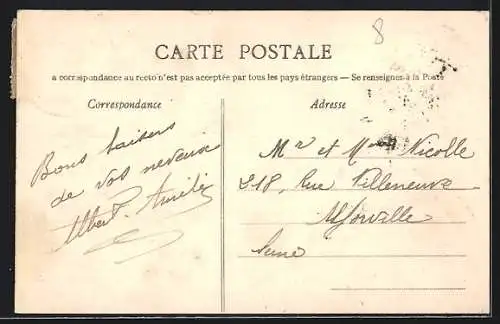 8
CARTE POSTALE
a correspondance au recto n'est pas acceptée par tous les pays étrangers — Se renseigner à la Poste
Correspondance
Adresse
Bons baisers
de vos neveux
Albert Amélie
Mr et Mme Nicolle
218, Rue Villeneuve
Alforville
Seine